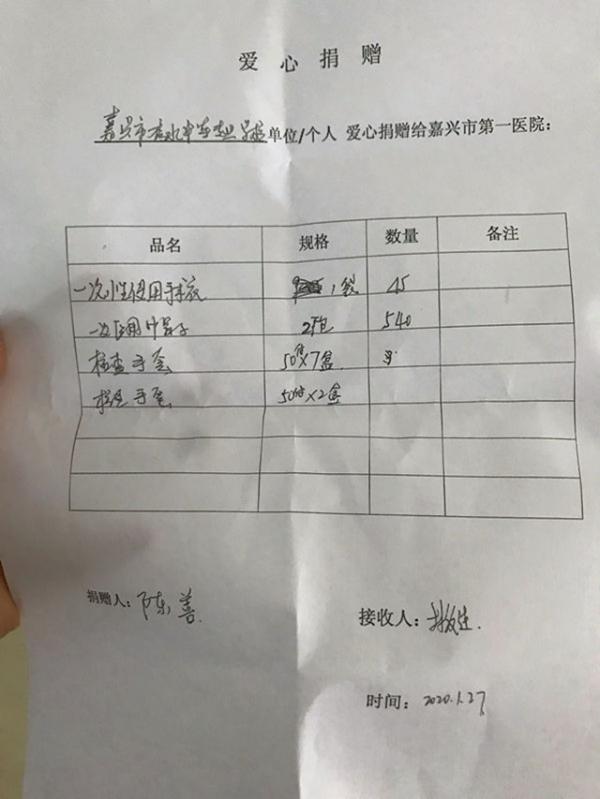 爱心捐赠
嘉兴市秀水中等专业学校单位/个人 爱心捐赠给嘉兴市第一医院:
品名 规格 数量 备注
一次性使用手术衣 1袋 45
一次性用帽子 540
检查手套 50付×7盒
检查手套 50付×2盒
捐赠人: 陈善
接收人:
时间: 2020.1.27